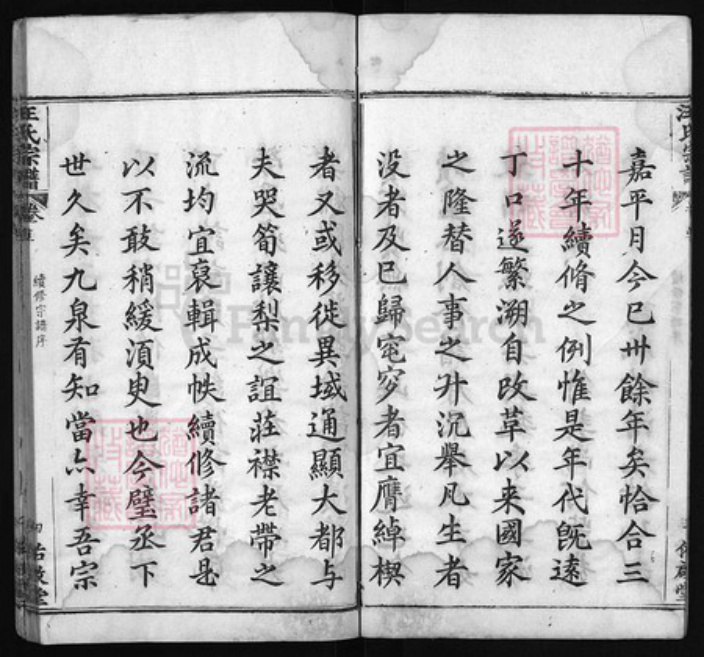 嘉平月今已卅餘年矣恰合三
十年續脩之例惟是年代旣遠
丁口遂繁溯自改革以来國家
之隆替人事之升沉舉凡生者
没者及已歸窀穸者宜膺綽楔
者又或移徙異域通顯大都与
夫哭筍讓梨之誼莊襟老帶之
流均宜裒輯成帙續修諸君是
以不敢稍緩湏臾也今璧丞下
世久矣九泉有知當亦幸吾宗
汪氏宗譜
卷壹
續修宗譜序
FamilySearch